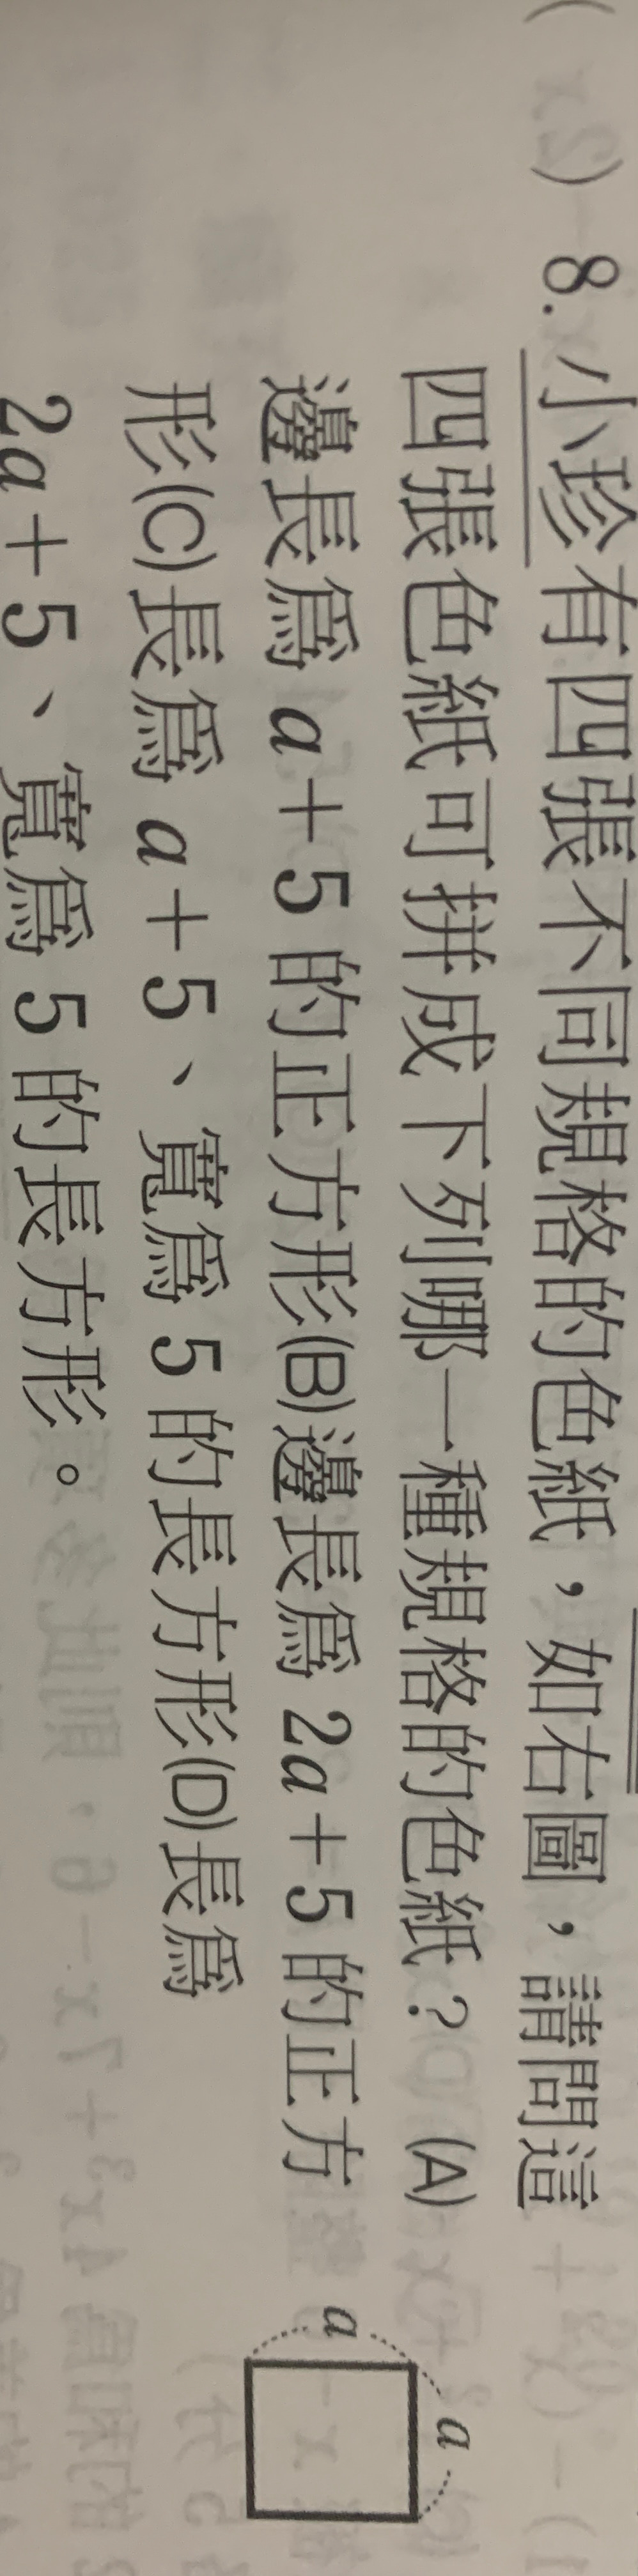 (
) 8. 小珍有四張不同規格的色紙，如右圖，請問這
四張色紙可拼成下列哪一種規格的色紙？ (A)
邊長為 a＋5 的正方形(B)邊長為 2a＋5 的正方
形(C)長為 a＋5、寬為 5 的長方形(D)長為
2a＋5、寬為 5 的長方形。
a
a